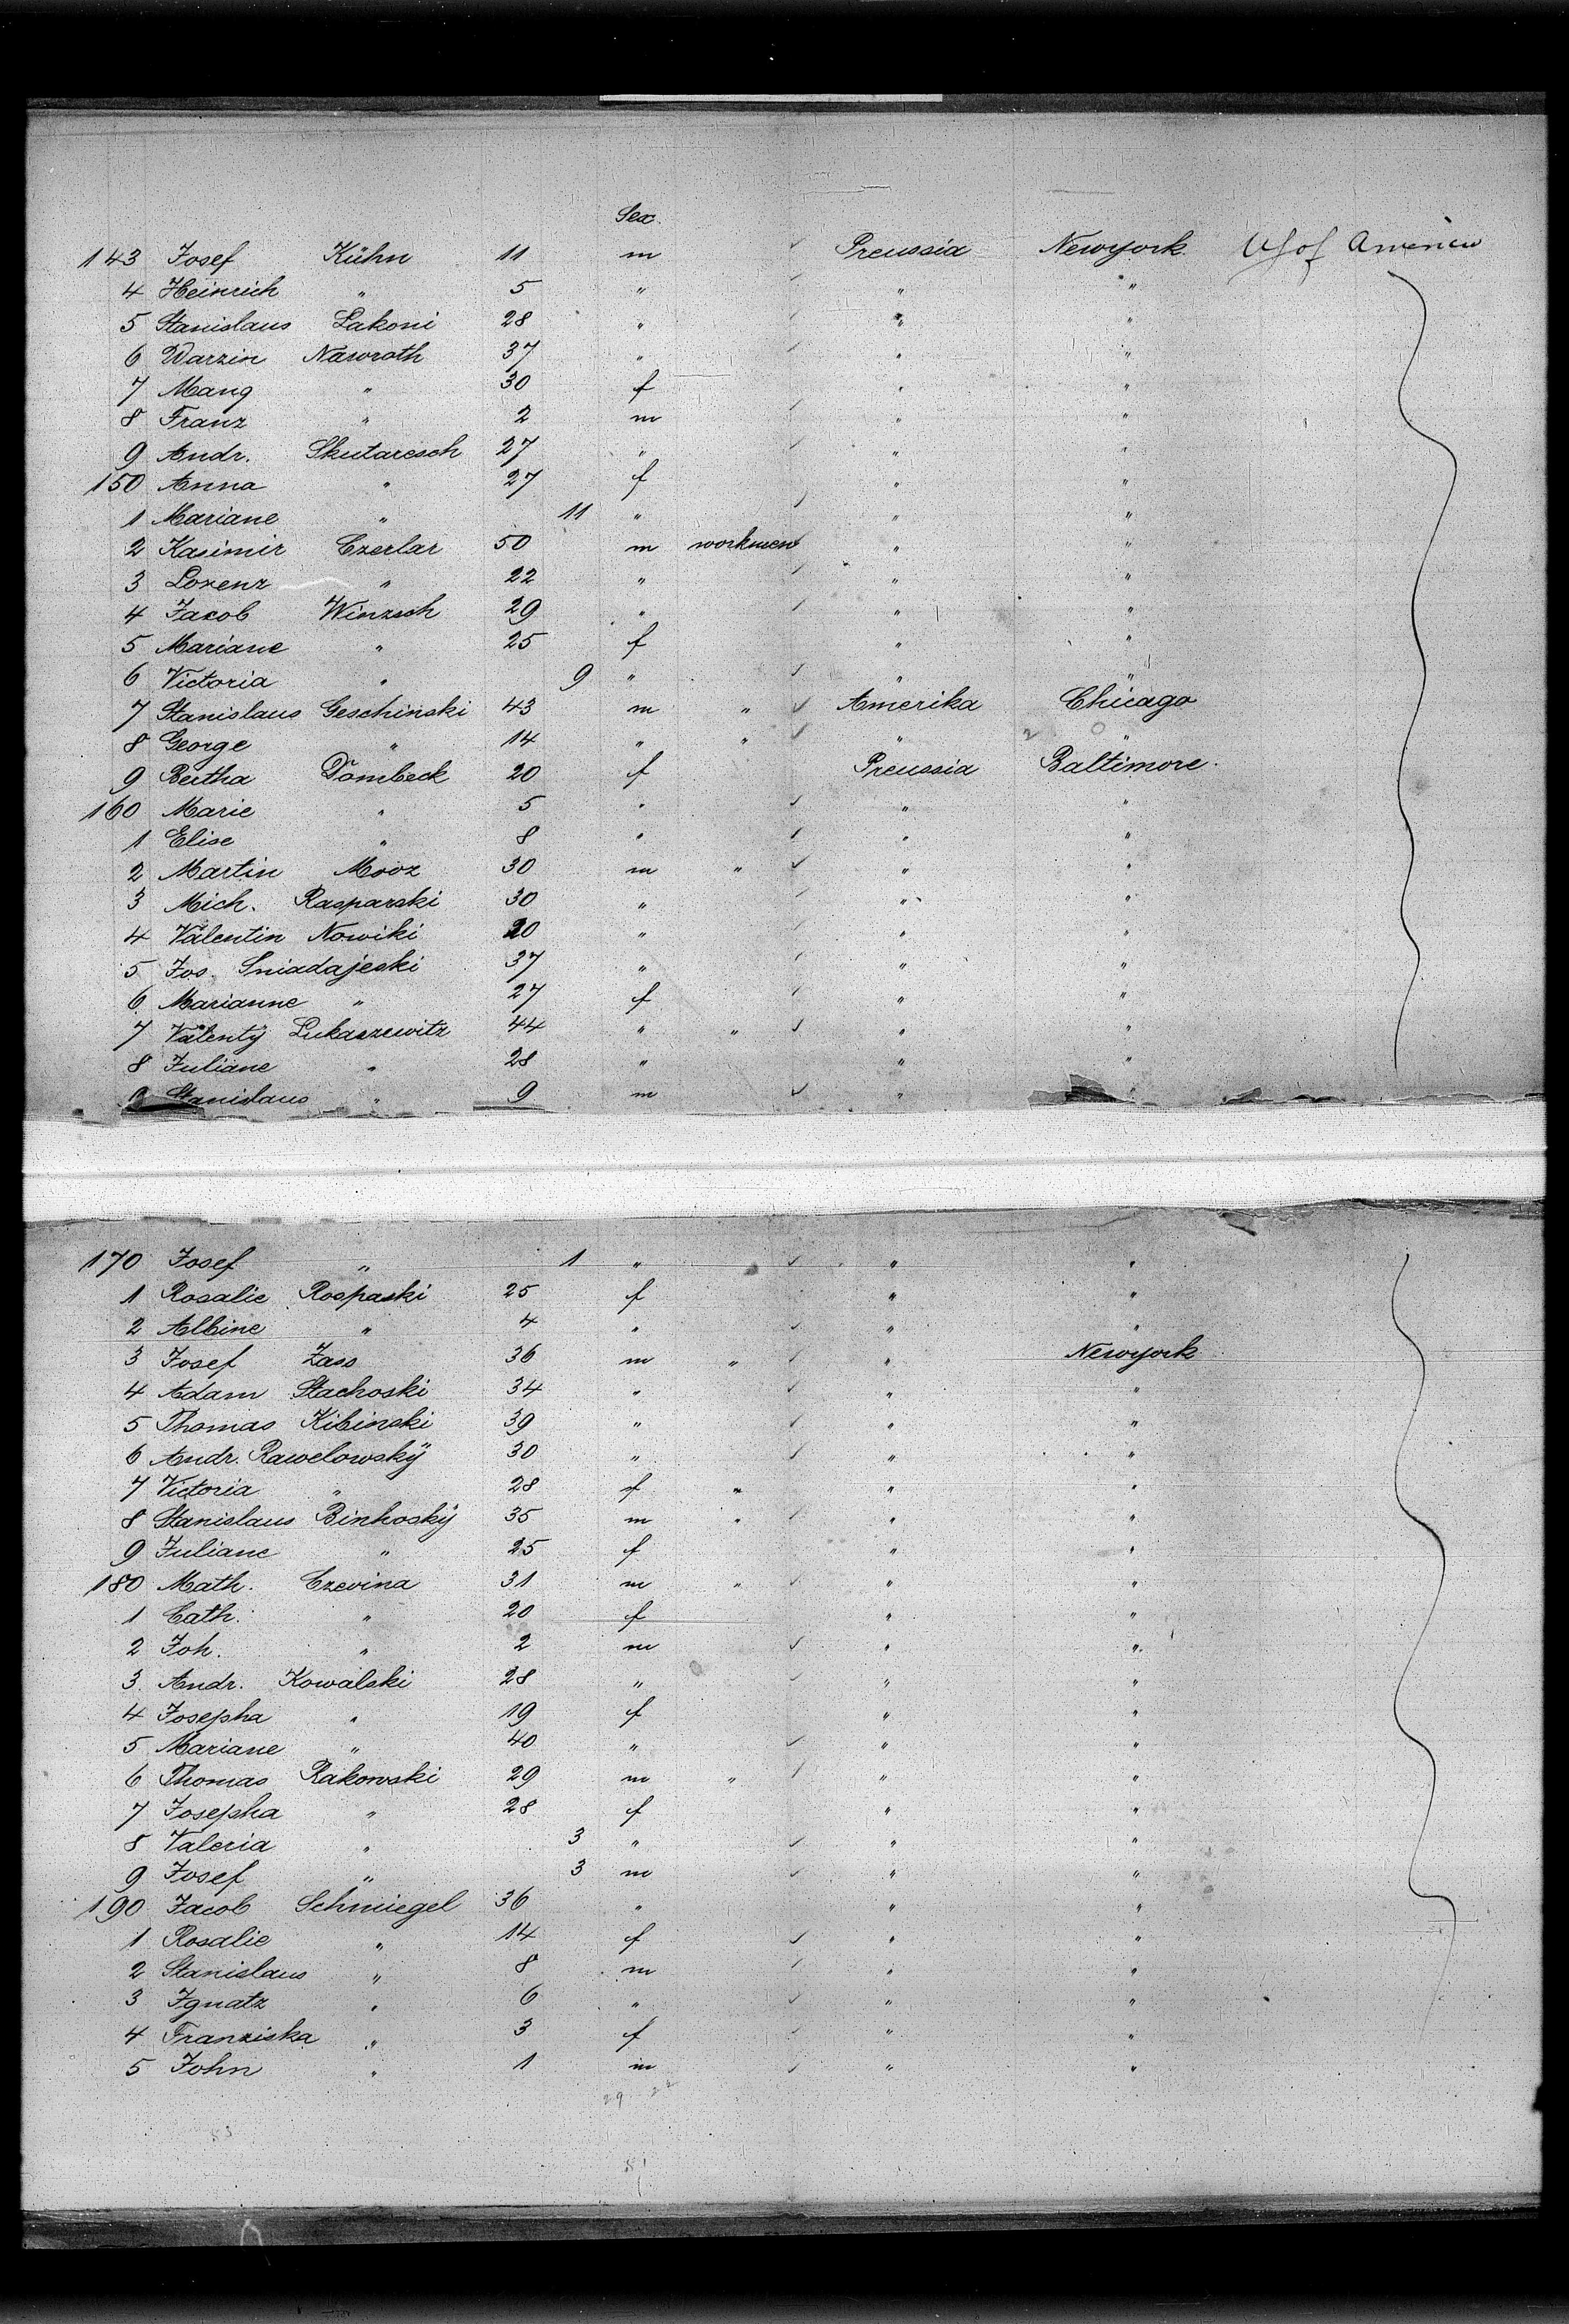 Sex
143 Josef Kühn 11 m Preussia Newyork. US of America
4 Heinrich " 5 " " "
5 Stanislaus Lakoni 28 " " "
6 Warzin Nawroth 37 " " "
7 Mang " 30 f " "
8 Franz " 2 m " "
9 Andr. Skutaresch 27 " " "
150 Anna " 27 f " "
1 Mariane " 11 " " "
2 Kasimir Czerlar 50 m workmen " "
3 Lorenz " 22 " " "
4 Jacob Winzsch 29 " " "
5 Mariane " 25 f " "
6 Victoria " 9 " " "
7 Stanislaus Geschinski 43 m " Amerika Chicago
8 George " 14 " " " "
9 Bertha Dombeck 20 f Preussia Baltimore.
160 Marie " 5 " " "
1 Elise " 8 " " "
2 Martin Mooz 30 m " " "
3 Mich. Rasparski 30 " " "
4 Valentin Nowiki 20 " " "
5 Jos. Sniadajeski 37 " " "
6 Marianne " 27 f " "
7 Valenty Lukaszewitz 44 " " " "
8 Juliane " 28 " " "
9 Stanislaus " 9 m " "
170 Josef " 1 " " "
1 Rosalie Rospaski 25 f " "
2 Albine " 4 " " "
3 Josef Zass 36 m " " Newyork
4 Adam Stachoski 34 " " "
5 Thomas Kibinski 39 " " "
6 Andr. Rawelowskÿ 30 " " "
7 Victoria " 28 f " " "
8 Stanislaus Binkoskÿ 35 m " " "
9 Juliane " 25 f " "
180 Math. Czevina 31 m " " "
1 Cath. " 20 f " "
2 Joh. " 2 m " "
3. Andr. Kowalski 28 " " "
4 Josepha " 19 f " "
5 Mariane " 40 " " "
6 Thomas Rakowski 29 m " " "
7 Josepha " 28 f " "
8 Valeria " 3 " " "
9 Josef " 3 m " "
190 Jacob Schmiegel 36 " " "
1 Rosalie " 14 f " "
2 Stanislaus " 8 m " "
3 Ignatz " 6 " " "
4 Franziska " 3 f " "
5 John " 1 m " "
29 22